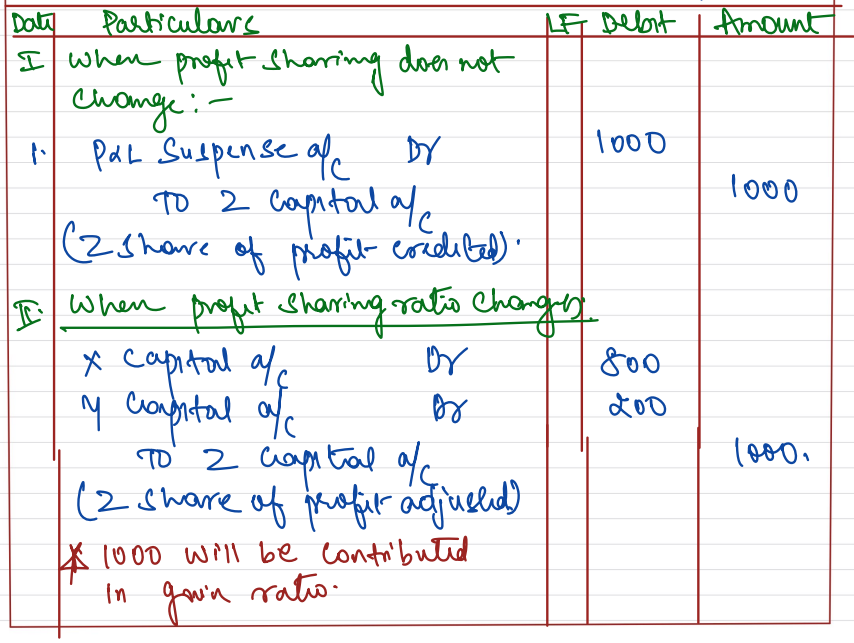 Date Particulars LF Debit Amount
I When profit sharing does not
change:-
1. P&L Suspense a/c Dr 1000
TO Z Capital a/c 1000
(Z share of profit credited).
II. When profit sharing ratio changes.
X Capital a/c Dr 800
Y Capital a/c Dr 200
TO Z Capital a/c 1000.
(Z share of profit adjusted)
* 1000 will be contributed
in gain ratio.